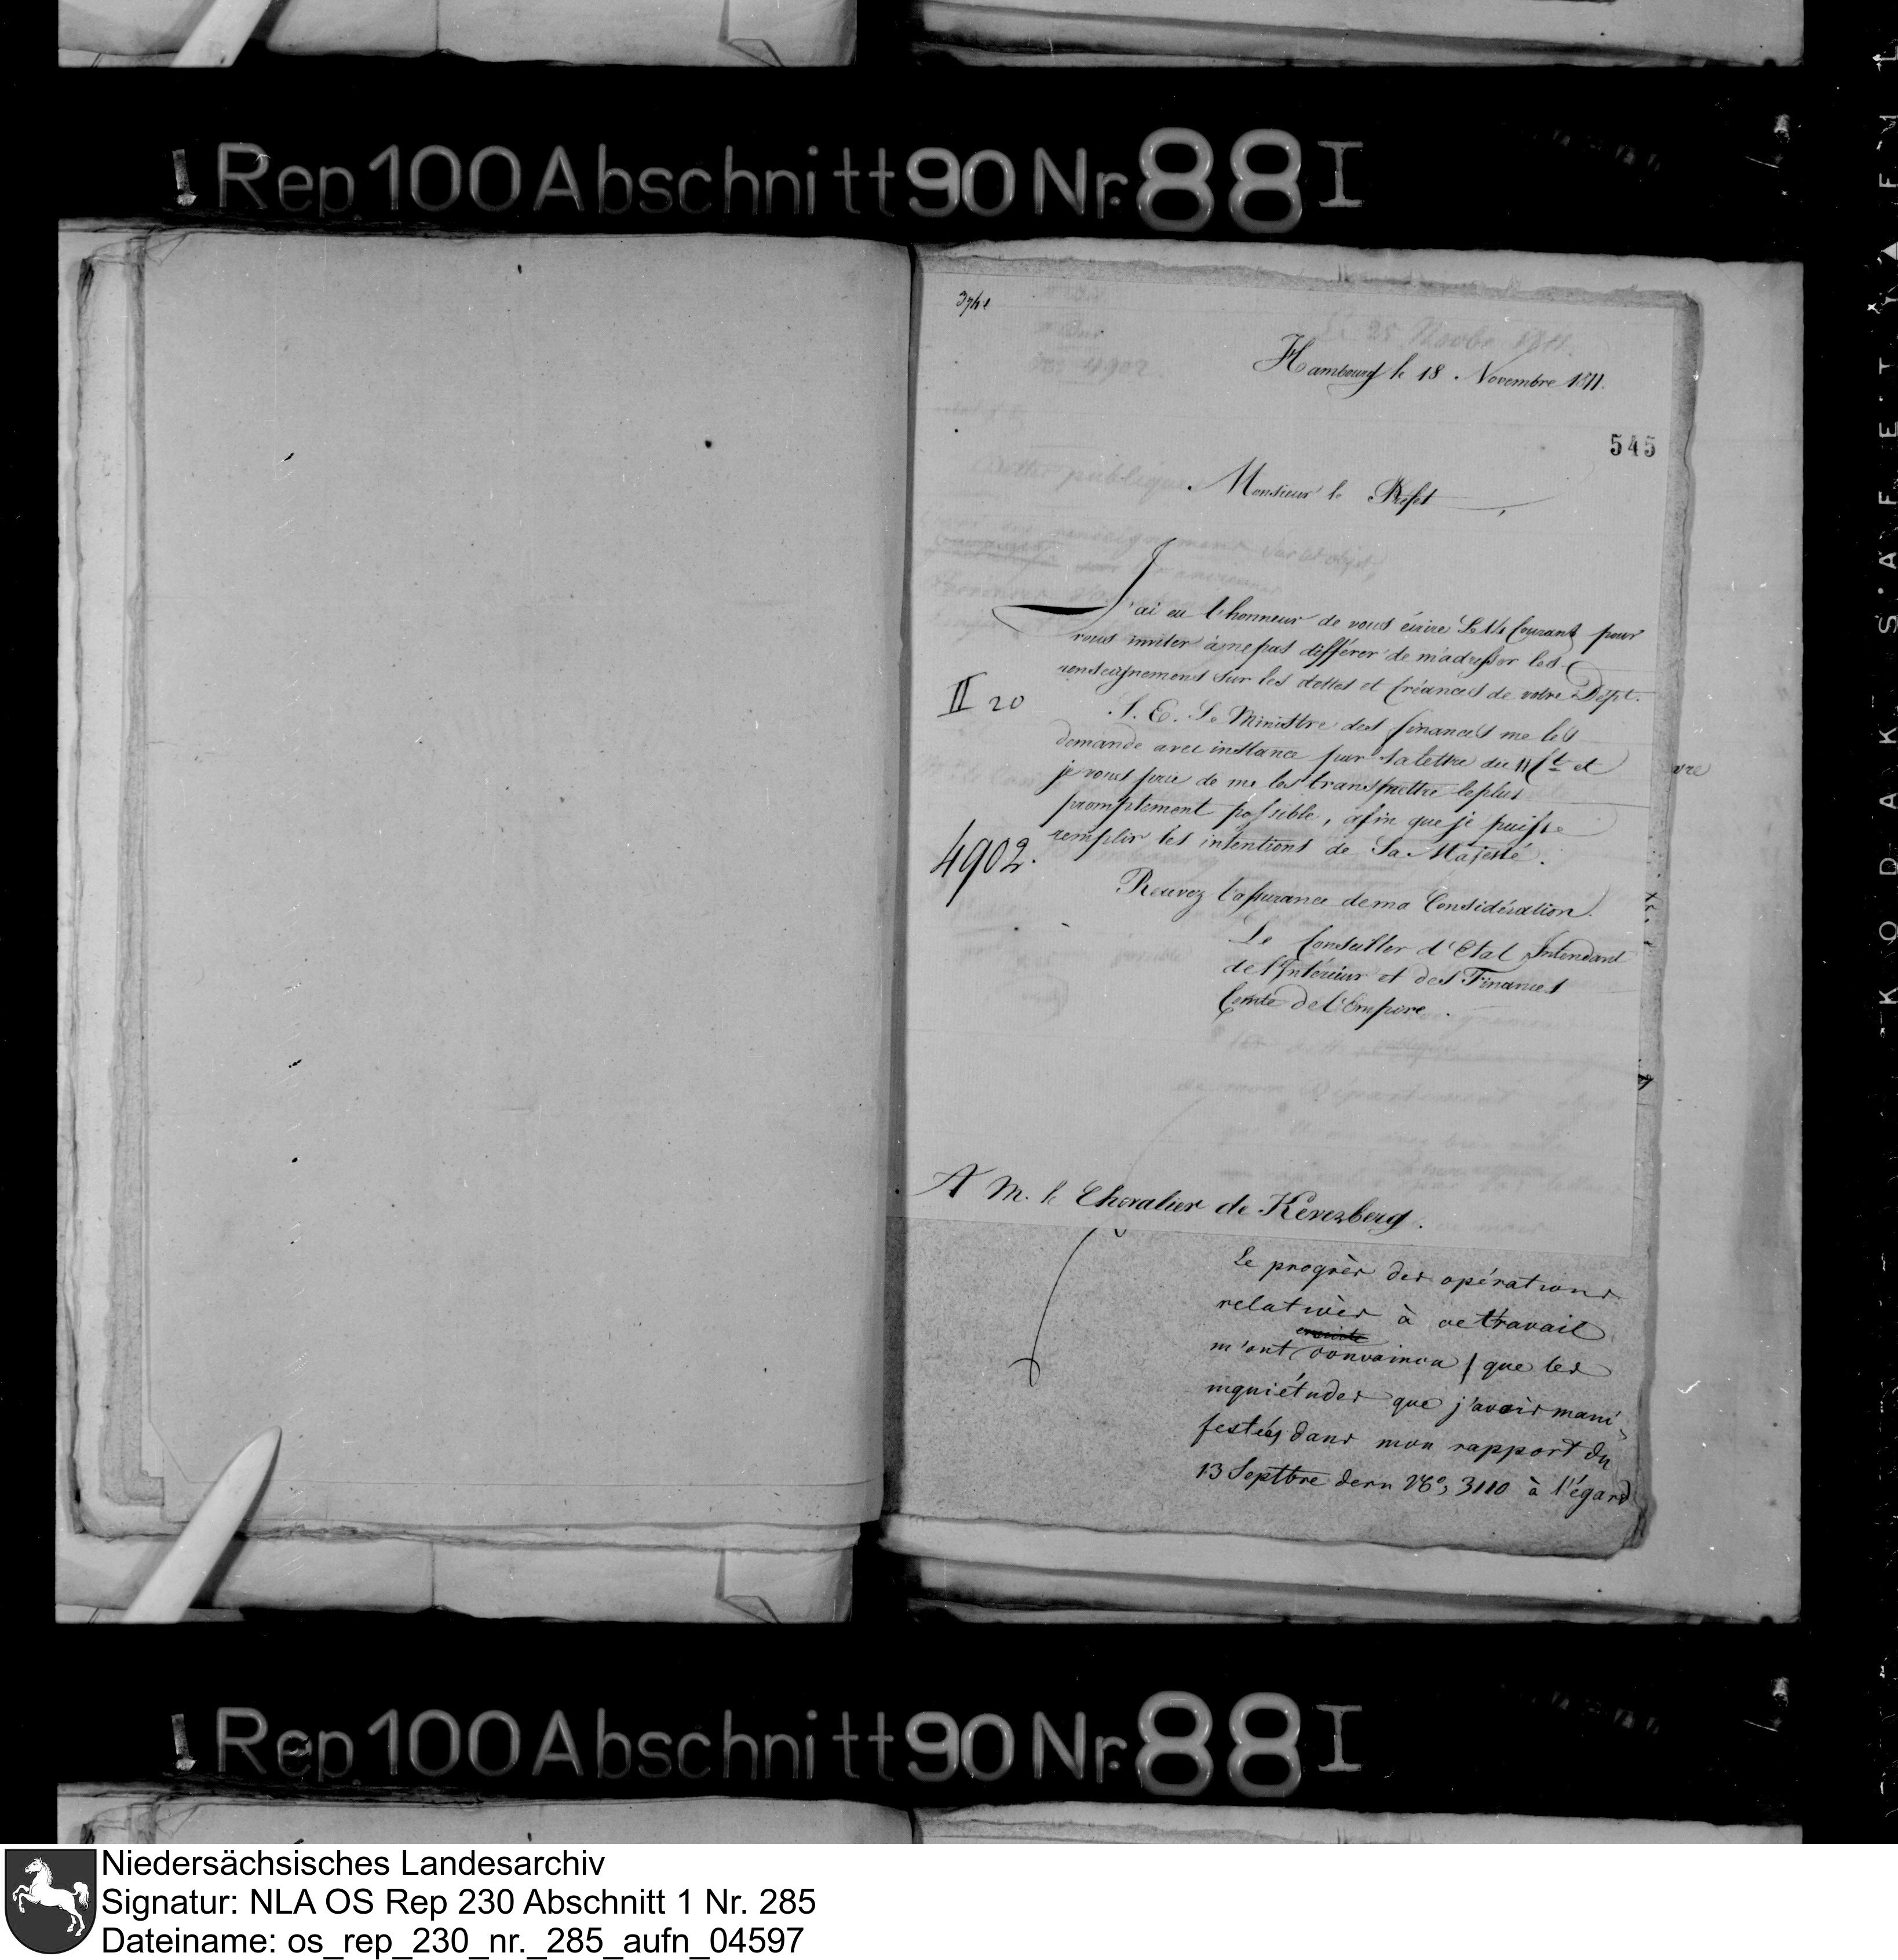 Rep. 100 Abschnitt 90 Nr. 88 I
3741
Hambourg le 18. Novembre 1811.
545
Monsieur le Préfet,
J'ai eu l'honneur de vous écrire Le 14 Courant pour
vous inviter à ne pas différer de m'adresser les
renseignemens sur les dettes et Créances de votre Dépt.
II 20
S. E. Le Ministre des finances me les
demande avec instance par sa lettre du 11 Ct. et
je vous prie de me les transmettre le plus
promptement possible, afin que je puisse
remplir les intentions de Sa Majesté.
4902.
Recevez l'assurance de ma Considération.
Le Conseiller d'Etat Intendant
de l'Intérieur et des Finances
Comte de l'Empire.
A M. le Chevalier de Keverberg.
Le progrès des opérations
relatives à ce travail
m'ont convaincu que les
inquiétudes que j'avois mani
festées dans mon rapport du
13 Septbre dern No, 3110 à l'égard
Rep. 100 Abschnitt 90 Nr. 88 I
KODAK SAFETY
Niedersächsisches Landesarchiv
Signatur: NLA OS Rep 230 Abschnitt 1 Nr. 285
Dateiname: os_rep_230_nr._285_aufn_04597